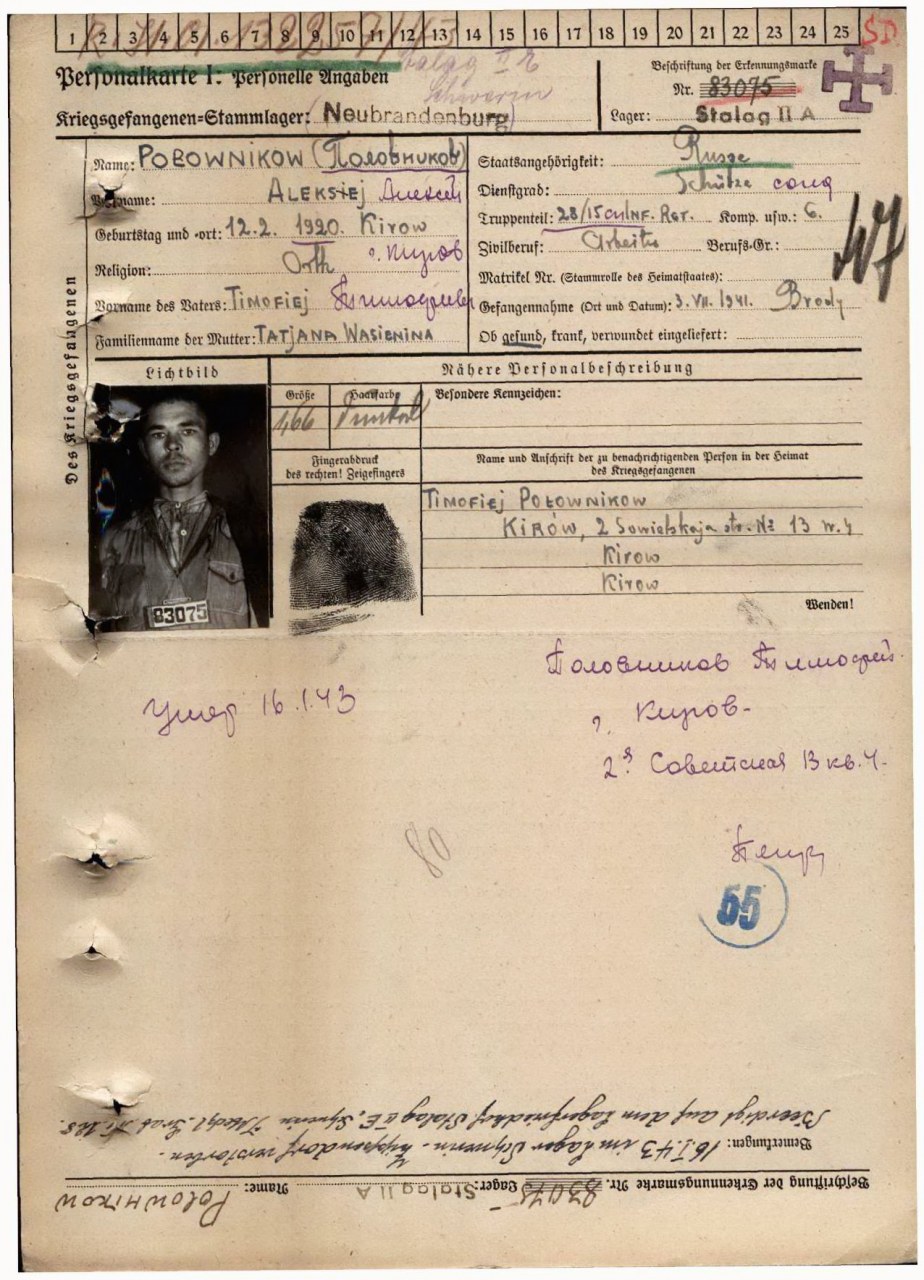 1 2 3 4 5 6 7 8 9 10 11 12 13 14 15 16 17 18 19 20 21 22 23 24 25
SD
Personalkarte I: Personelle Angaben
Stalag II E
Schwerin
Kriegsgefangenen-Stammlager: Neubrandenburg
Beschriftung der Erkennungsmarke
Nr. 83075
Lager: Stalag II A
Des Kriegsgefangenen
Name: POŁOWNIKOW (Половников)
Vorname: ALEKSIEJ Алексей
Geburtstag und -ort: 12.2. 1920. Kirow
Religion: Orth г. Киров
Vorname des Vaters: TIMOFIEJ Тимофеев
Familienname der Mutter: TATJANA WASIENINA
Staatsangehörigkeit: Russe
Dienstgrad: Schütze солд
Truppenteil: 28/ INF. RGT. Komp. usw.: 6.
Zivilberuf: Arbeiter Berufs-Gr.:
Matrikel Nr. (Stammrolle des Heimatstaates):
Gefangennahme (Ort und Datum): 3. VII. 1941. Brody
Ob gesund, krank, verwundet eingeliefert:
Lichtbild
Nähere Personalbeschreibung
Größe
Haarfarbe
Besondere Kennzeichen:
166
dunkel
Fingerabdruck
des rechten! Zeigefingers
Name und Anschrift der zu benachrichtigenden Person in der Heimat
des Kriegsgefangenen
TIMOFIEJ POŁOWNIKOW
KIRÓW, 2 Sowietskaja str. № 13 m. 4
Kirow
Kirow
Wenden!
83075
Половников Тимофей
г. Киров-
2я Советская 13 кв. 4.
Умер 16.1.43
80
55
Bemerkungen: 16.I.43 im Lager Schwerin-Zippendorf verstorben.
Beerdigt auf dem Lagerfriedhof Stalag II E, Schwerin
Beschriftung der Erkennungsmarke Nr. 83075 Lager: Stalag II A Name: POŁOWNIKOW